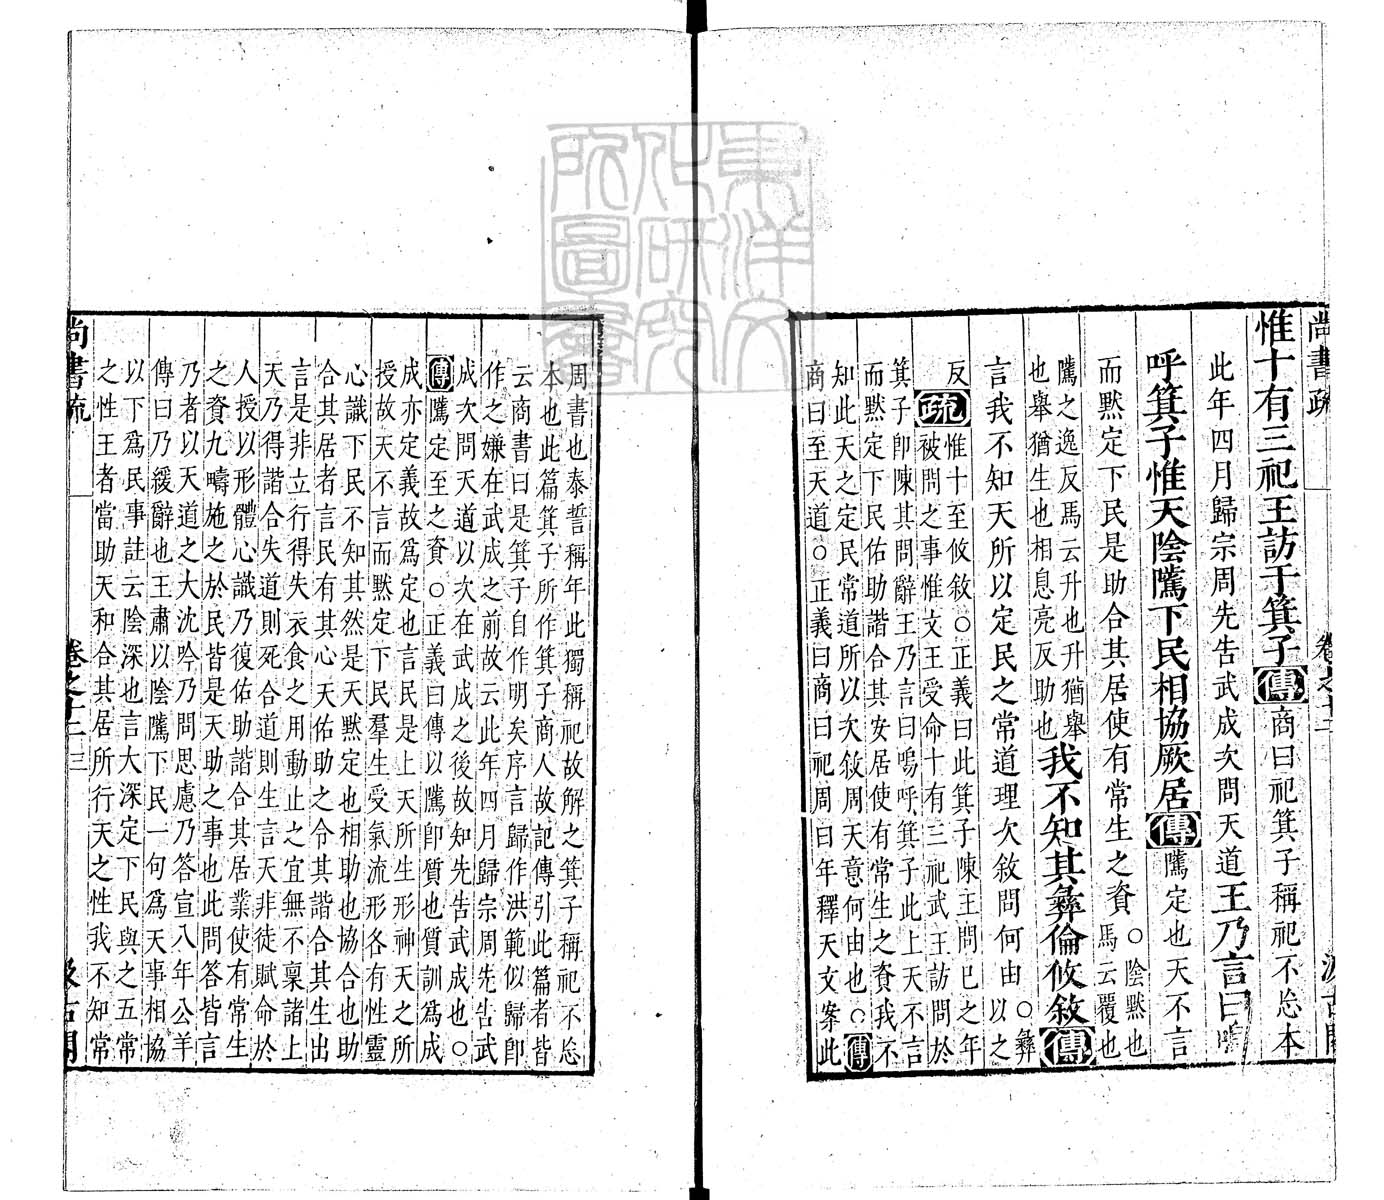 尚書疏 卷之十二 汲古閣
惟十有三祀王訪于箕子傳商曰祀箕子稱祀不忘本
此年四月歸宗周先告武成次問天道王乃言曰嗚
呼箕子惟天陰騭下民相協厥居傳騭定也天不言
而默定下民是助合其居使有常生之資○陰默也馬云覆也
騭之逸反馬云升也升猶舉也舉猶生也相息亮反助也我不知其彝倫攸敘傳
言我不知天所以定民之常道理次敘問何由○彝以之
反疏惟十至攸敘○正義曰此箕子陳王問己之年
被問之事惟文王受命十有三祀武王訪問於
箕子即陳其問辭王乃言曰嗚呼箕子此上天不言
而默定下民佑助諧合其安居使有常生之資我不
知此天之定民常道所以次敘問天意何由也○傳
商曰至天道○正義曰商曰祀周曰年釋天文案此
周書也泰誓稱年此獨稱祀故解之箕子稱祀不忘
本也此篇箕子所作箕子商人故記傳引此篇者皆
云商書曰是箕子自作明矣序言歸作洪範似歸即
作之嫌在武成之前故云此年四月歸宗周先告武
成次問天道以次在武成之後故知先告武成也○
傳騭定至之資○正義曰傳以騭即質也質訓為成
成亦定義故為定也言民是上天所生形神天之所
授故天不言而默定下民羣生受氣流形各有性靈
心識下民不知其然是天默定也相助也協合也助
合其居者言民有其心天佑助之令其諧合其生出
言是非立行得失衣食之用動止之宜無不稟諸上
天乃得諧合失道則死合道則生言天非徒賦命於
人授以形體心識乃復佑助諧合其居業使有常生
之資九疇施之於民皆是天助之事也此問答皆言
乃者以天道之大沈吟乃問思慮乃答宣八年公羊
傳曰乃緩辭也王肅以陰騭下民一句為天事相協
以下為民事註云陰深也言大深定下民與之五常
之性王者當助天和合其居所行天之性我不知常
尚書疏 卷之十二 三 汲古閣
東洋文化研究所圖書